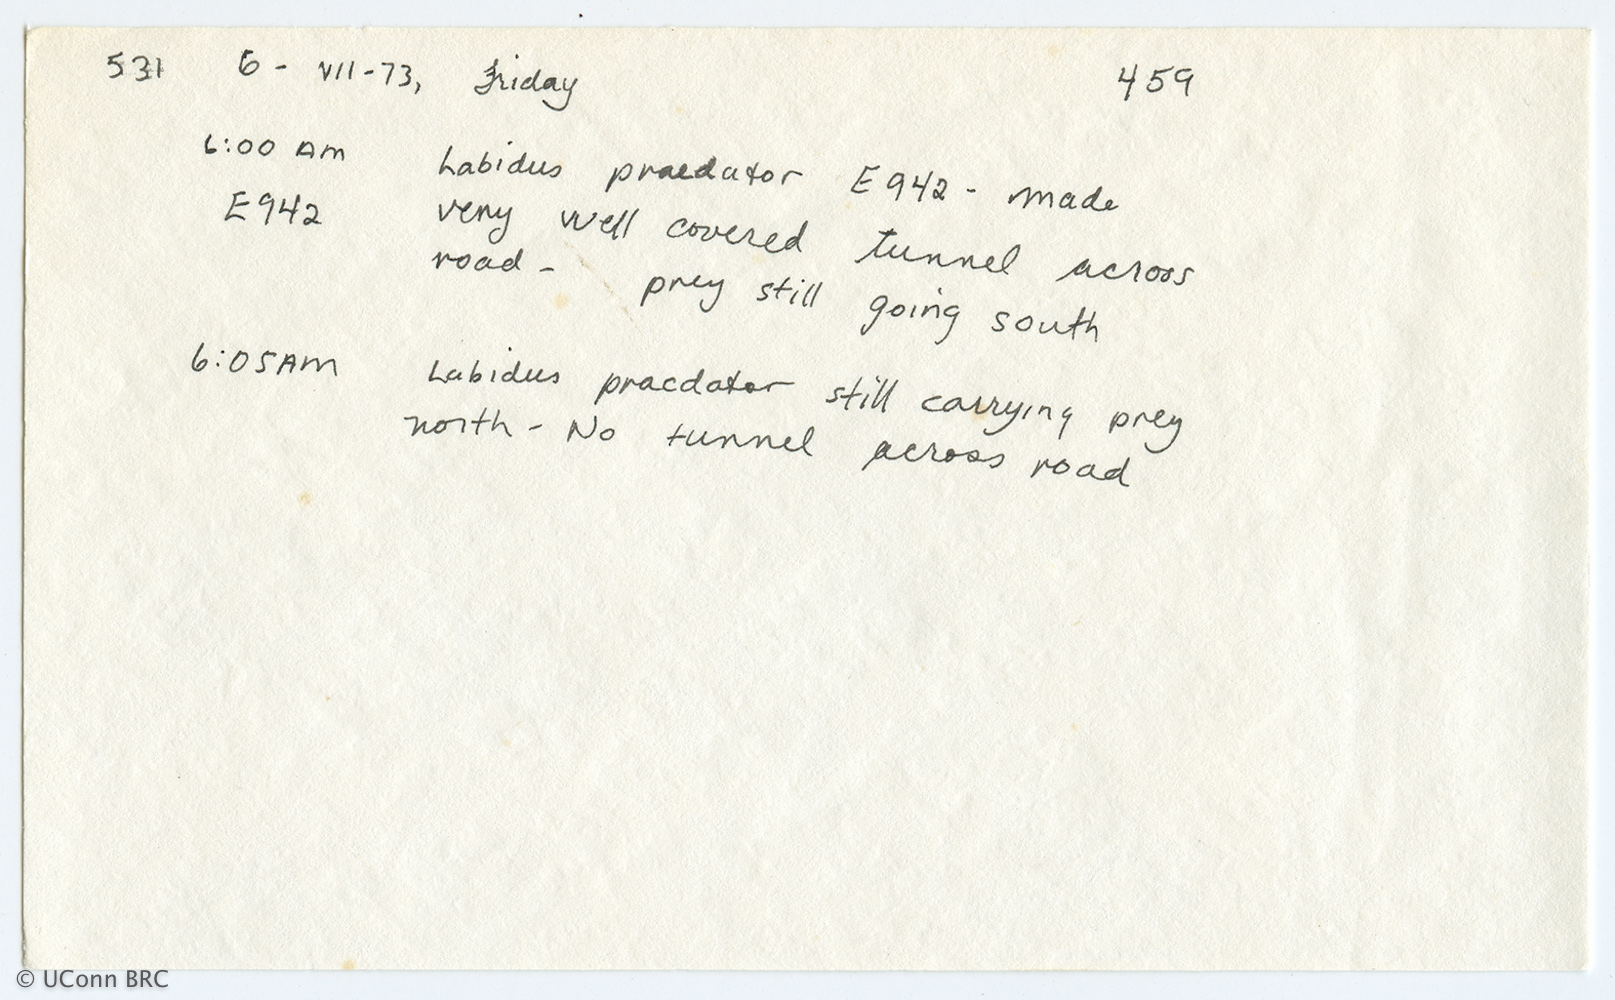 531 6-VII-73, Friday 459
6:00 AM Labidus praedator E942 - made
E942 very well covered tunnel across
road - prey still going south
6:05 AM Labidus praedator still carrying prey
north - No tunnel across road
© UConn BRC